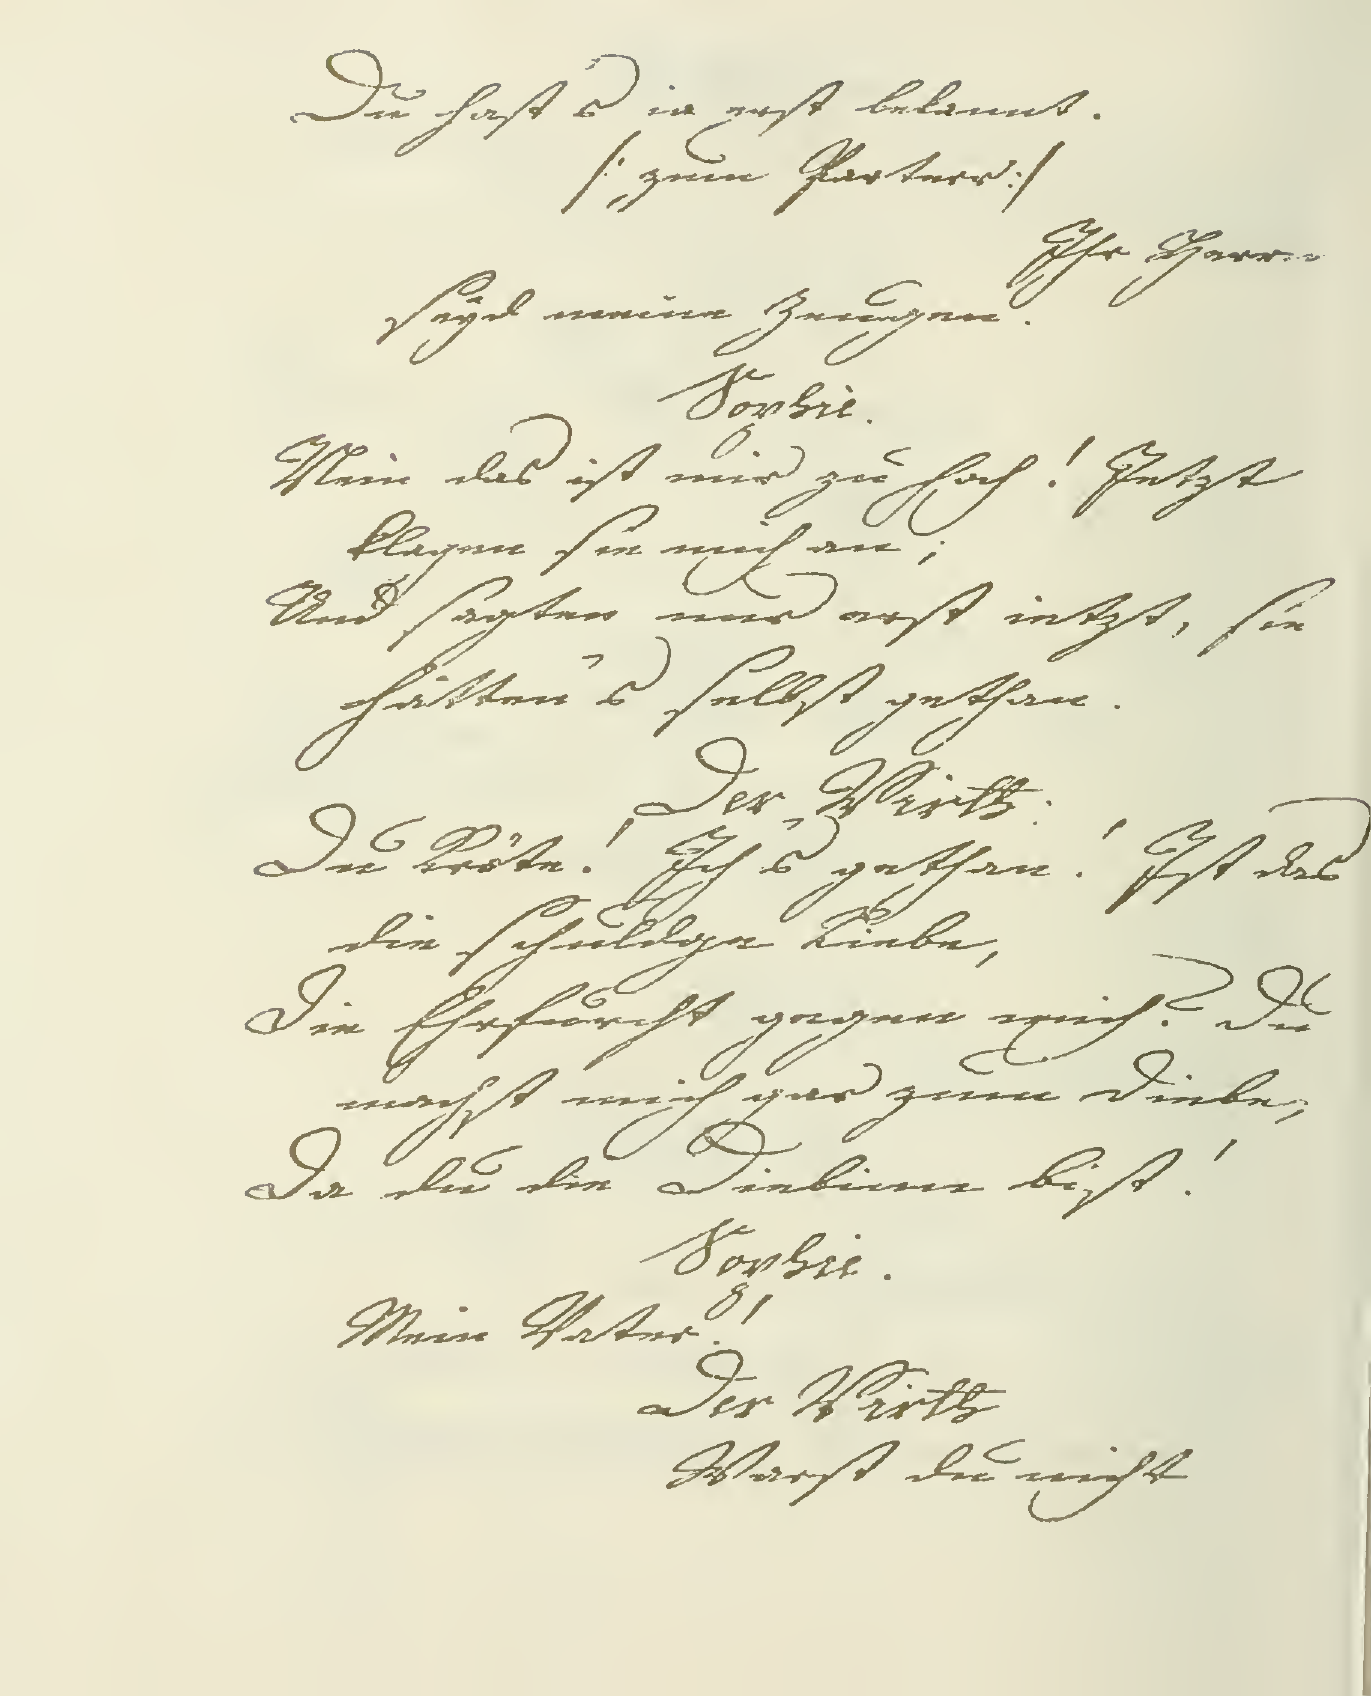 Du hast's ia erst bekannt.
/: zum Parterr :/
Ihr Herrn
seyd meine Zeugen.
Sophie.
Nein das ist mir zu hoch! Jetzt
klagen sie mich an;
Und sagten mir erst ietzt, sie
hätten's selbst gethan.
Der Wirth.
Du Kröte! Ich's gethan! Ist das
die schuldge Liebe,
Die Ehrfurcht gegen mich? Du
machst mich gar zum Diebe,
Da du die Diebinn bist!
Sophie.
Mein Vater!
Der Wirth
Warst du nicht